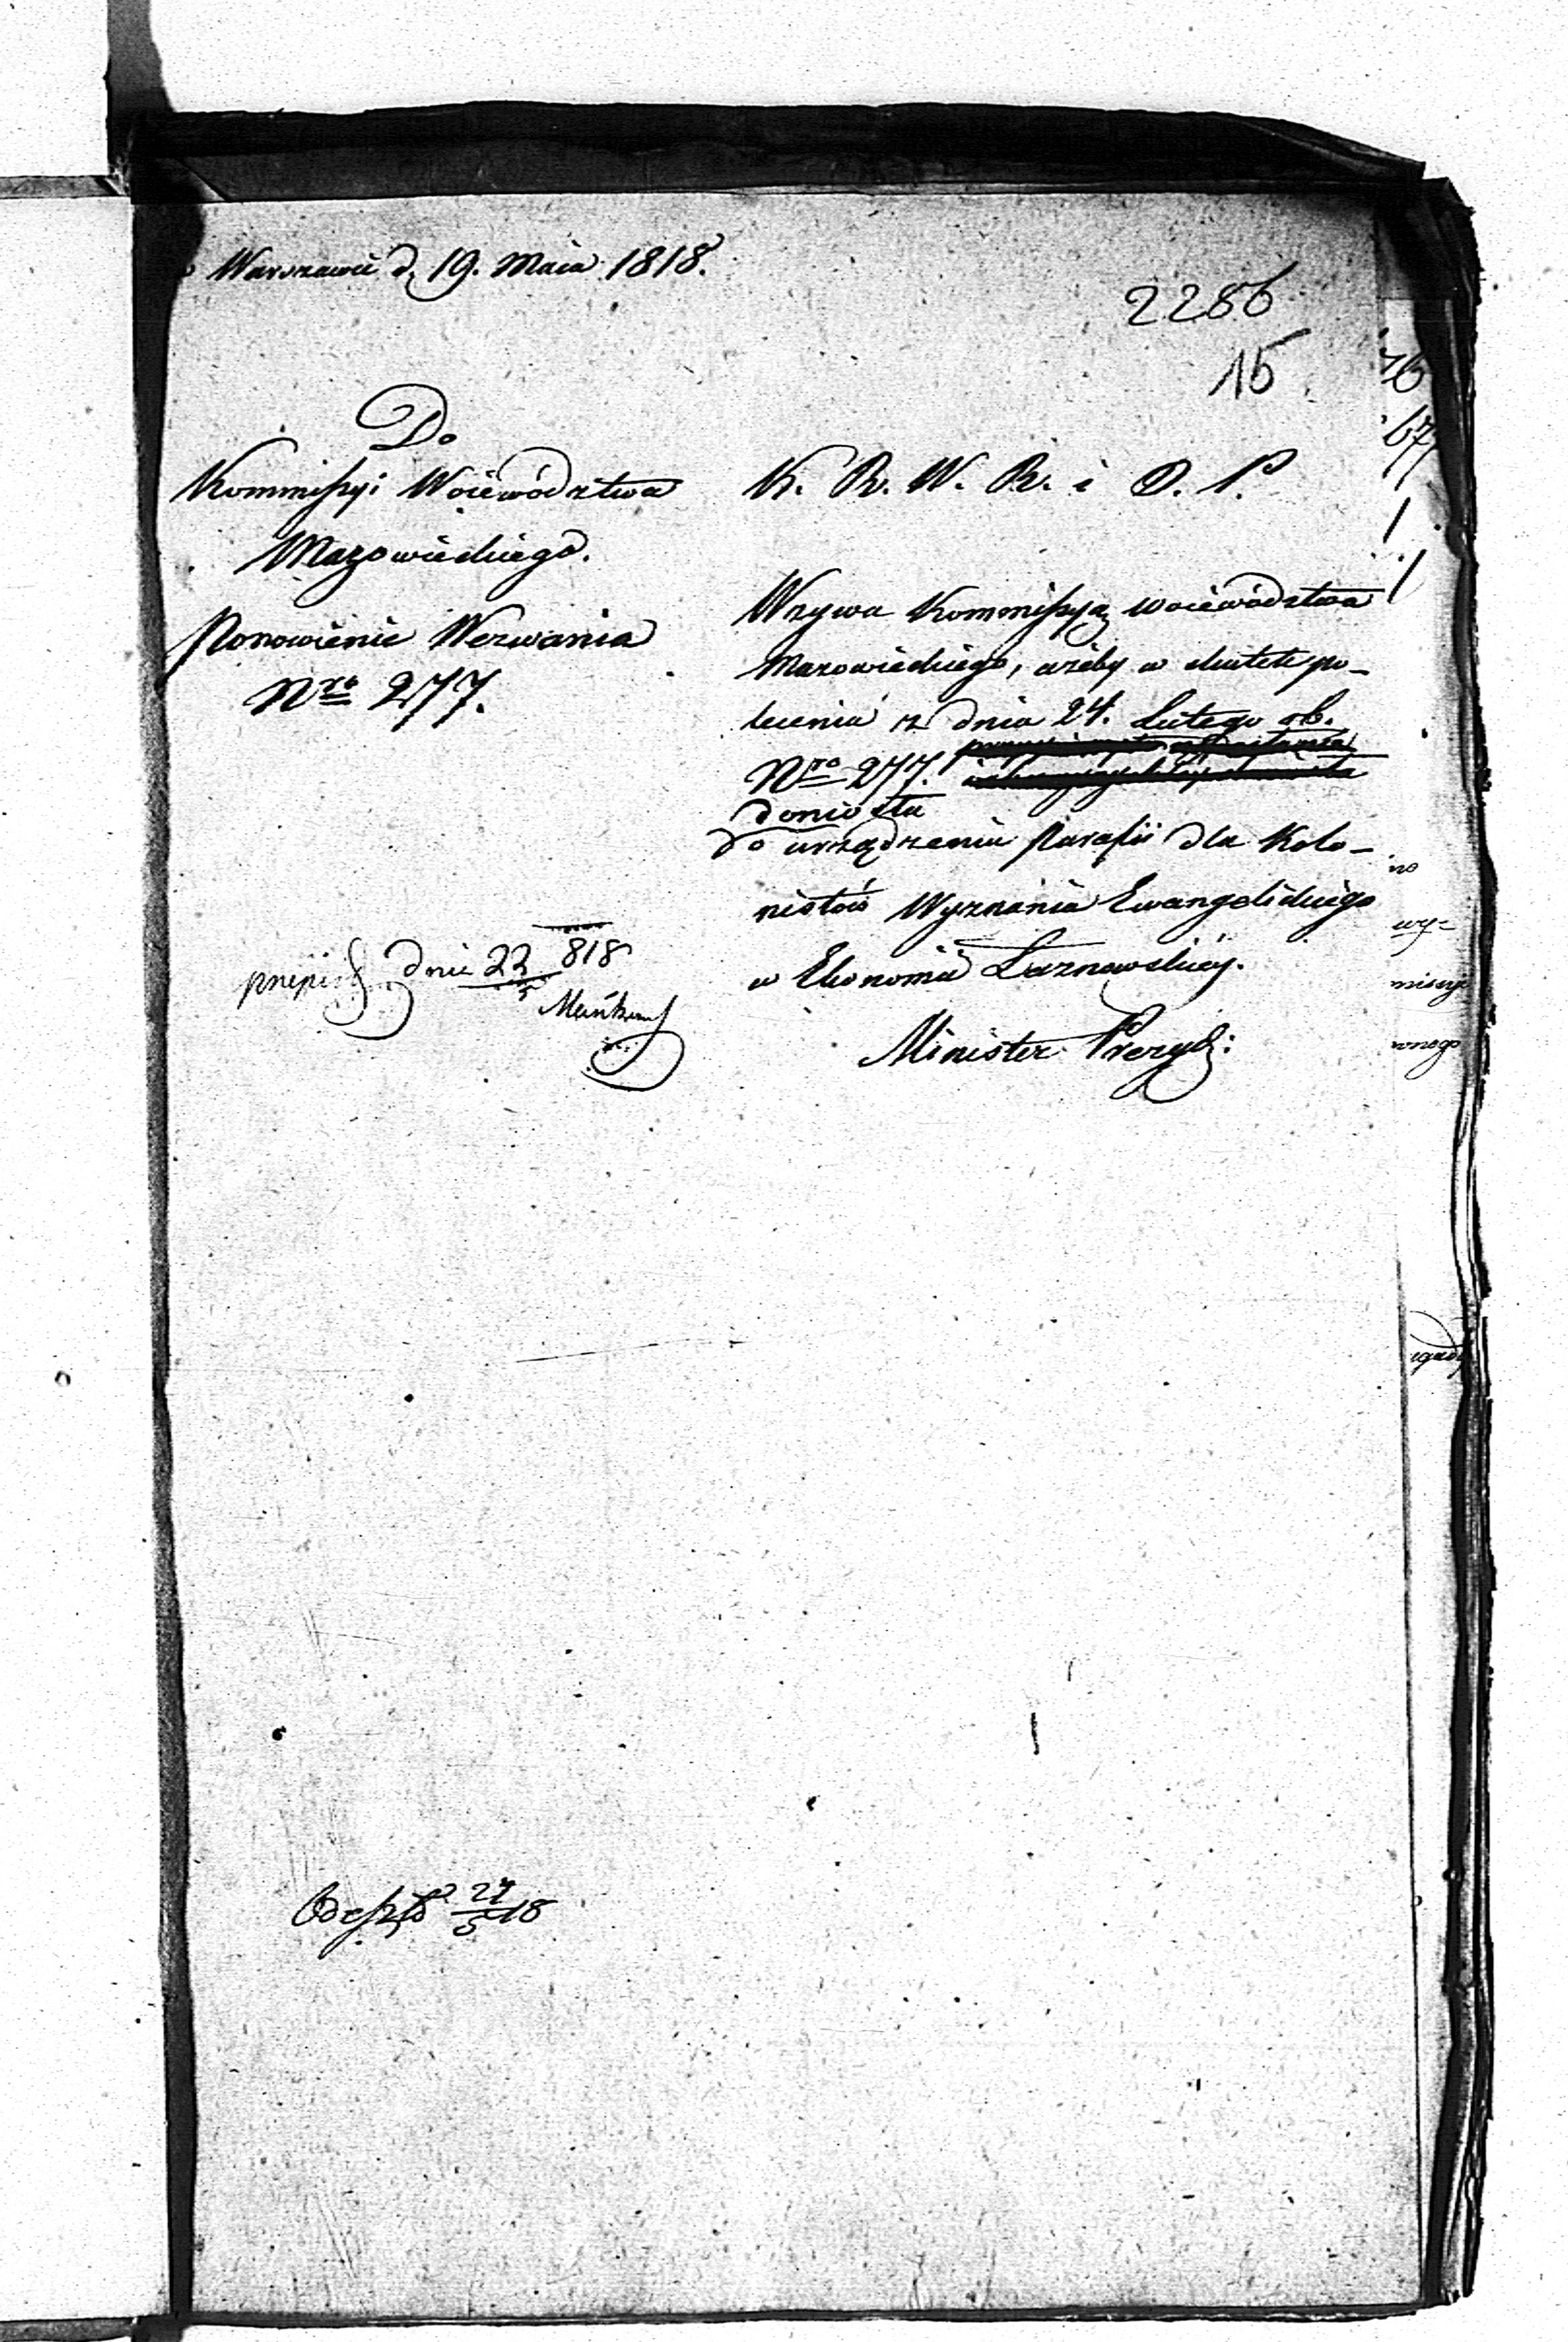 Warszawie d. 19. Maia 1818.
2286
15
Do
Kommissyi Woiewództwa
Mazowieckiego.
Ponowienie Wezwania
Nro 277.
K. R. W. R. i O. P.
Wzywa Kommissyą Woiewództwa
Mazowieckiego, ażeby w skutek po-
lecenia z dnia 24. Lutego rb.
Nro 277.
doniosła
do urządzenia Parafii dla Kolo-
nistów Wyznania Ewangelickiego
w Ekonomii Łaznowskiey.
Minister Prezyd:
dnia 22 818
5
Odeszło 27/5 18